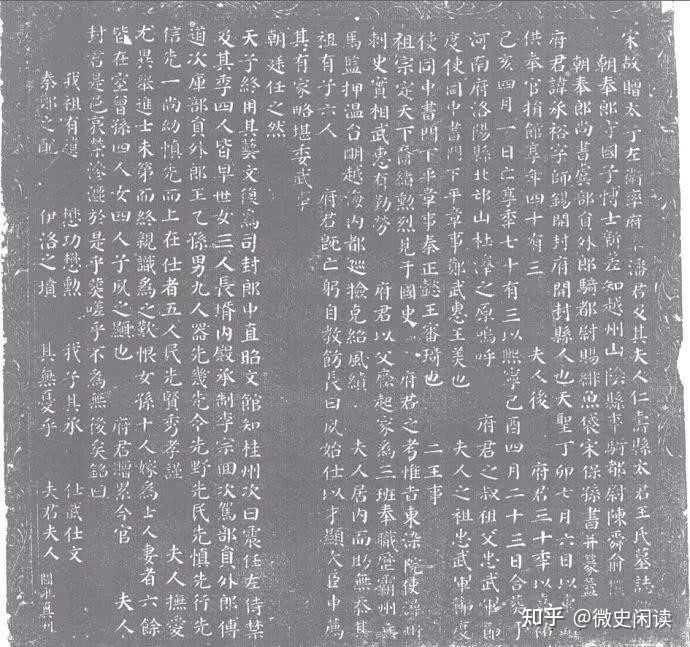 宋故贈太子左衛率府 潘君夫其夫人仁壽縣太君王氏墓誌
朝奉郎守國子博士新差知越州山陰縣事騎都尉陳舜俞撰
朝奉郎尚書虞部員外郎騎都尉賜緋魚袋宋保孫書并篆蓋
府君諱承裕字師錫開封府開封縣人也天聖丁卯七月六日以東
供奉官捐館享年四十有三 夫人後 府君三十季以嘉祐
己亥四月一日亡享季七十有三以熙寧己酉四月二十三日合葬于
河南府洛陽縣北邙山杜澤之原嗚呼 府君之叔祖父忠武軍節
度使同中書門下平章事鄭武惠王美也 夫人之祖忠武軍節度
使同中書門下平章事秦正懿王審琦也 二王事
祖宗定天下裔緒勲烈見于國史 府君之考惟吉東染院使潯州
刺史實相武惠有勤勞 府君以父廕起家為三班奉職歷霸州兵
馬監押溫台明越海內都巡檢克紹風績 夫人居內而助無忝其
祖有子六人 府君既亡躬自教飭長曰夙始仕以才顯大臣申薦
其有家略堪委武事
朝廷任之然
天子終用其藝文復為司封郎中直昭文館知桂州次曰震任左侍禁
及其季四人皆早世女三人長壻內殿承制李宗回次駕部員外郎傅
道次庫部員外郎王乙孫男九人器先幾先令先野先民先慎先行先
信先一尚幼慎先而上在仕者五人民先賢秀孝謹 夫人撫愛
尤異舉進士未第而終親識為之歎恨女孫十人嫁為士人妻者六餘
皆在室曾孫四人女四人子夙之顯也 府君贈累今官 夫人
封君是邑哀榮 於是乎 嗟乎不為無後矣銘曰
我祖有 懋功懋勲 我子其承 仕武仕文
秦鄭之配 伊洛之墳 其無憂乎 夫君夫人
知乎 @微史闲读